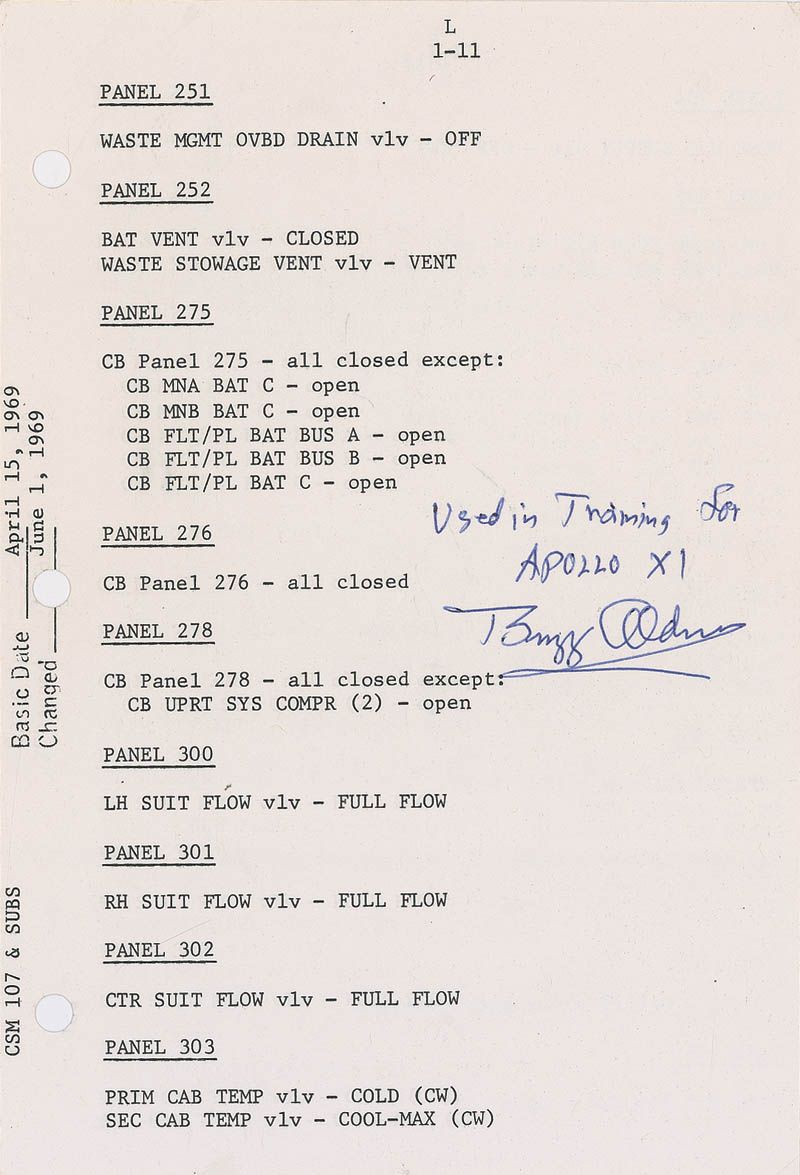 L
1-11
PANEL 251
WASTE MGMT OVBD DRAIN vlv - OFF
PANEL 252
BAT VENT vlv - CLOSED
WASTE STOWAGE VENT vlv - VENT
PANEL 275
CB Panel 275 - all closed except:
CB MNA BAT C - open
CB MNB BAT C - open
CB FLT/PL BAT BUS A - open
CB FLT/PL BAT BUS B - open
CB FLT/PL BAT C - open
Used in Training for
APOLLO XI
Buzz Aldrin
PANEL 276
CB Panel 276 - all closed
PANEL 278
CB Panel 278 - all closed except:
CB UPRT SYS COMPR (2) - open
PANEL 300
LH SUIT FLOW vlv - FULL FLOW
PANEL 301
RH SUIT FLOW vlv - FULL FLOW
PANEL 302
CTR SUIT FLOW vlv - FULL FLOW
PANEL 303
PRIM CAB TEMP vlv - COLD (CW)
SEC CAB TEMP vlv - COOL-MAX (CW)
CSM 107 & SUBS
Basic Date April 15, 1969
Changed June 1, 1969